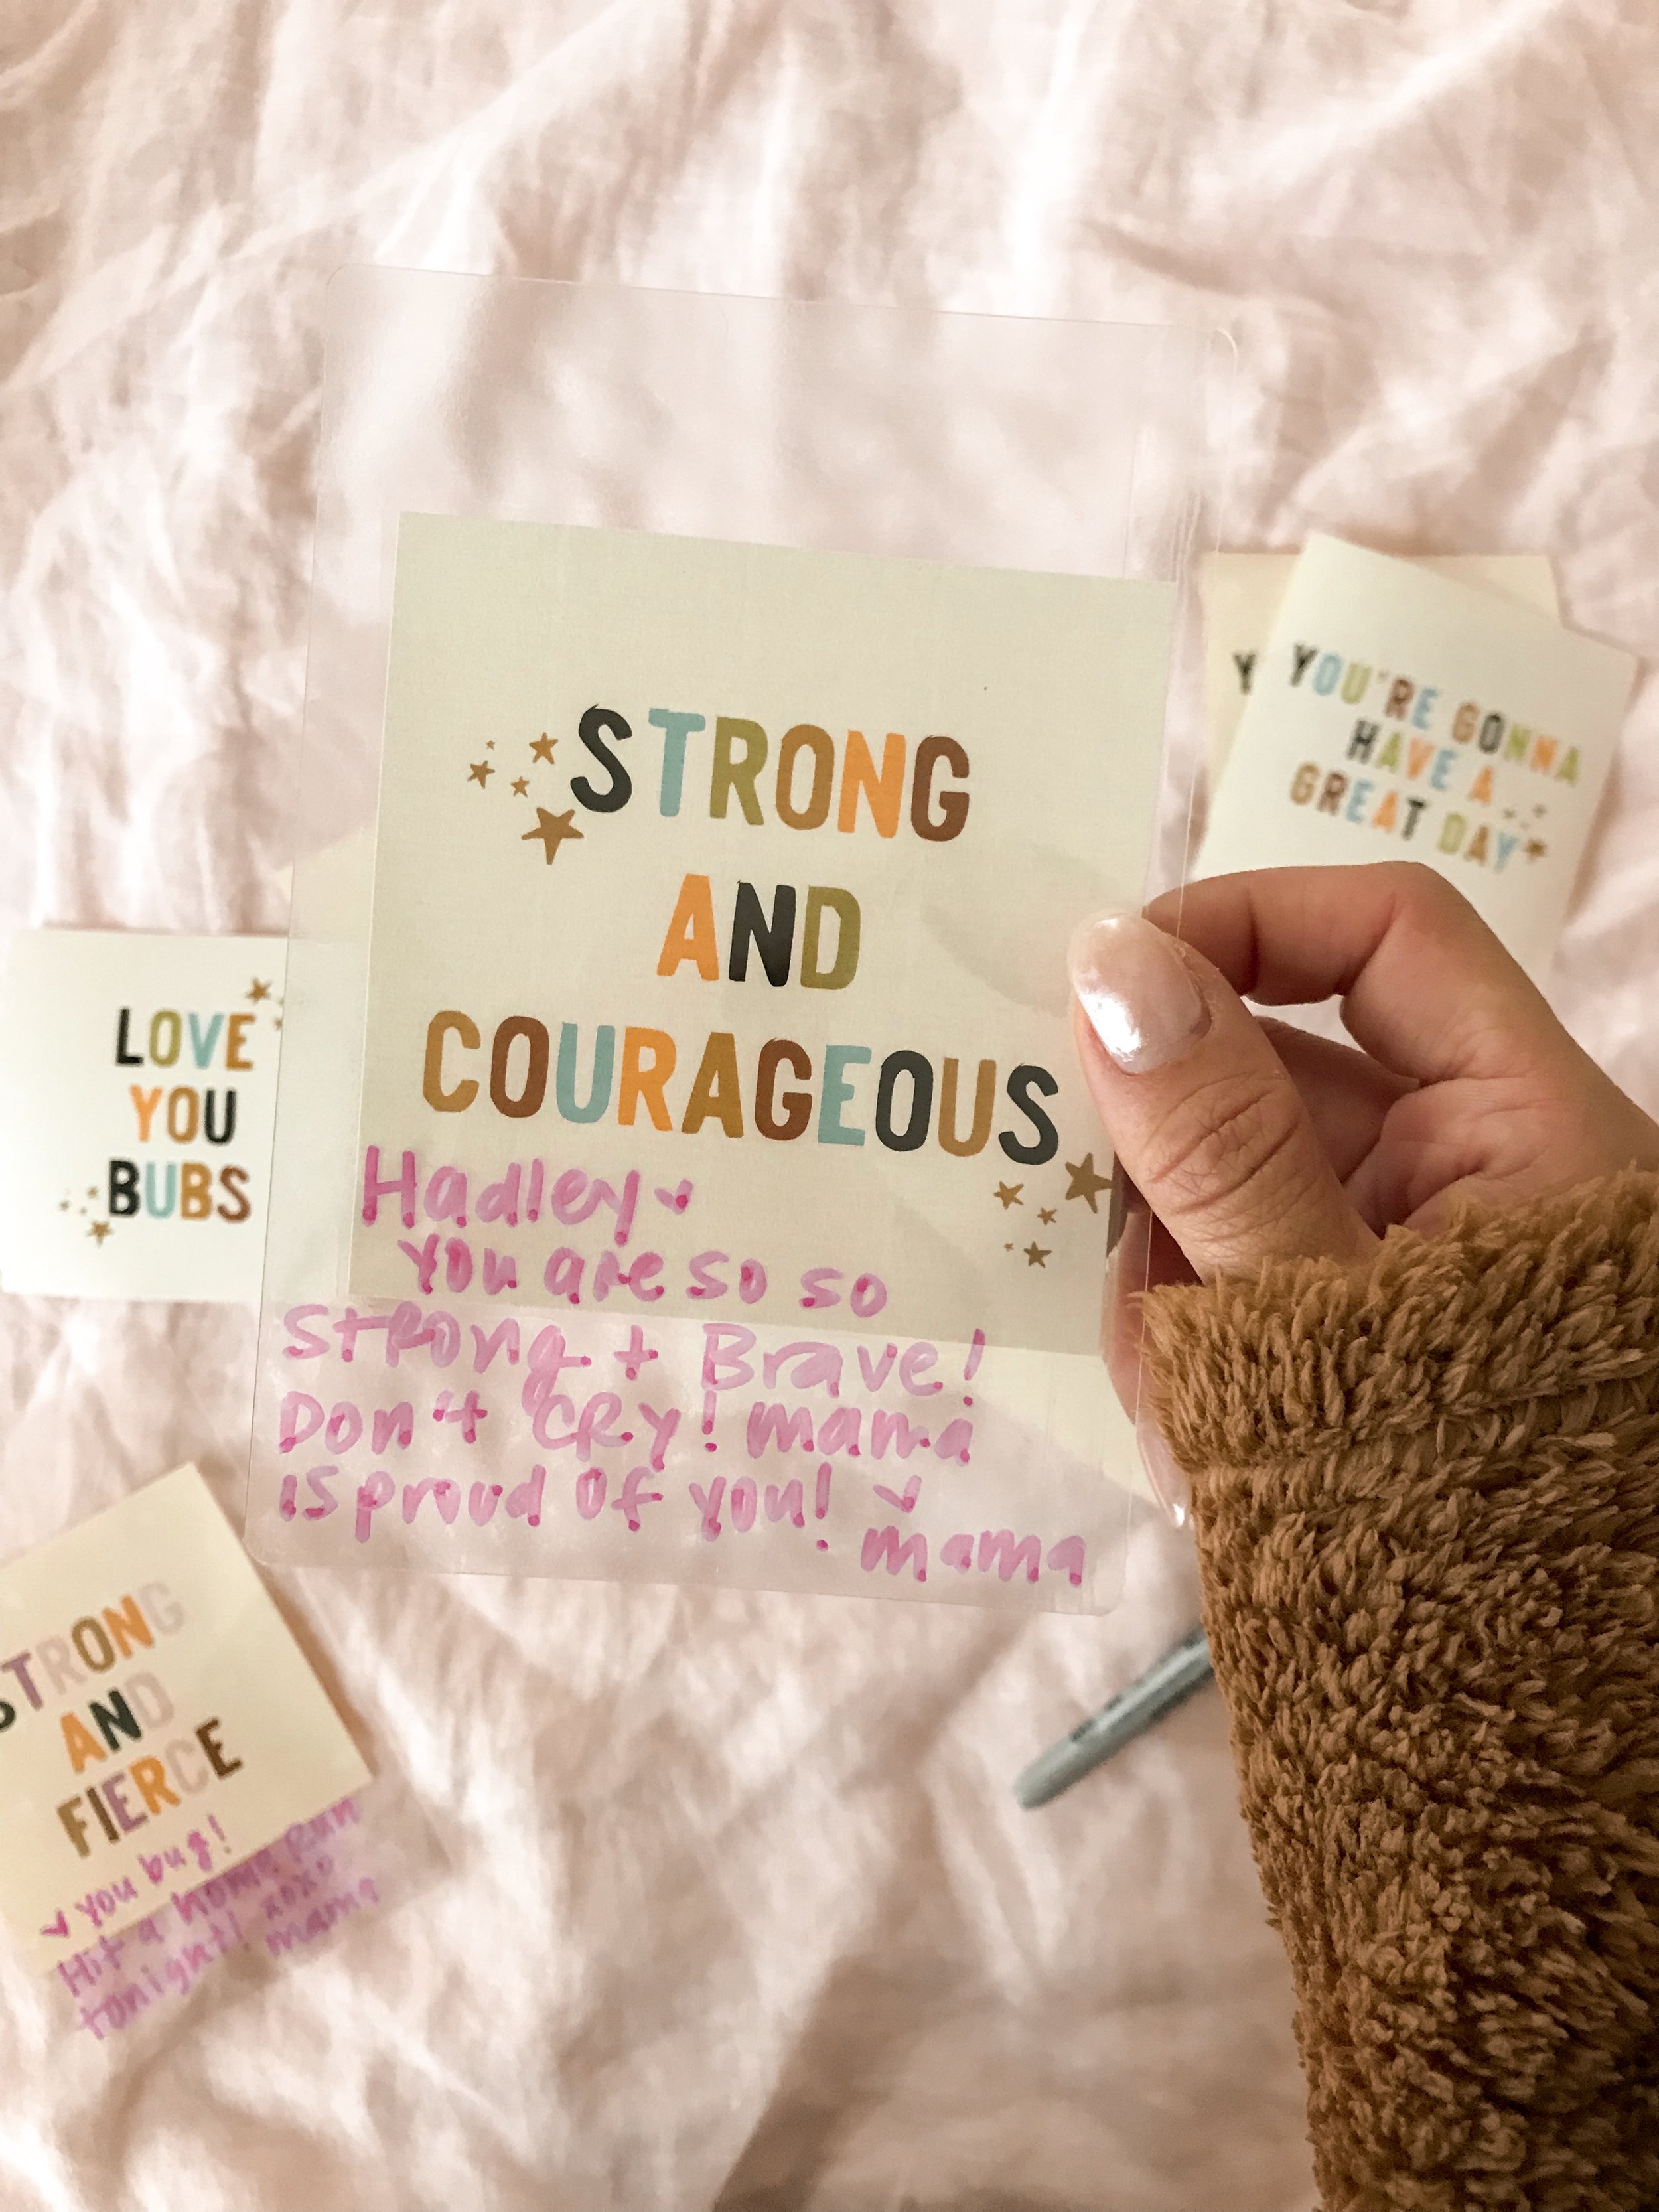 STRONG
AND
COURAGEOUS
Hadley
You are so so
Strong + Brave!
Don't CRy! mama
is proud of you!
mama
YOU'RE GONNA
HAVE A
GREAT DAY
Y
LOVE
YOU
BUBS
STRONG
AND
FIERCE
you bug!
Hit a home Run
tonight! xoxo
mama